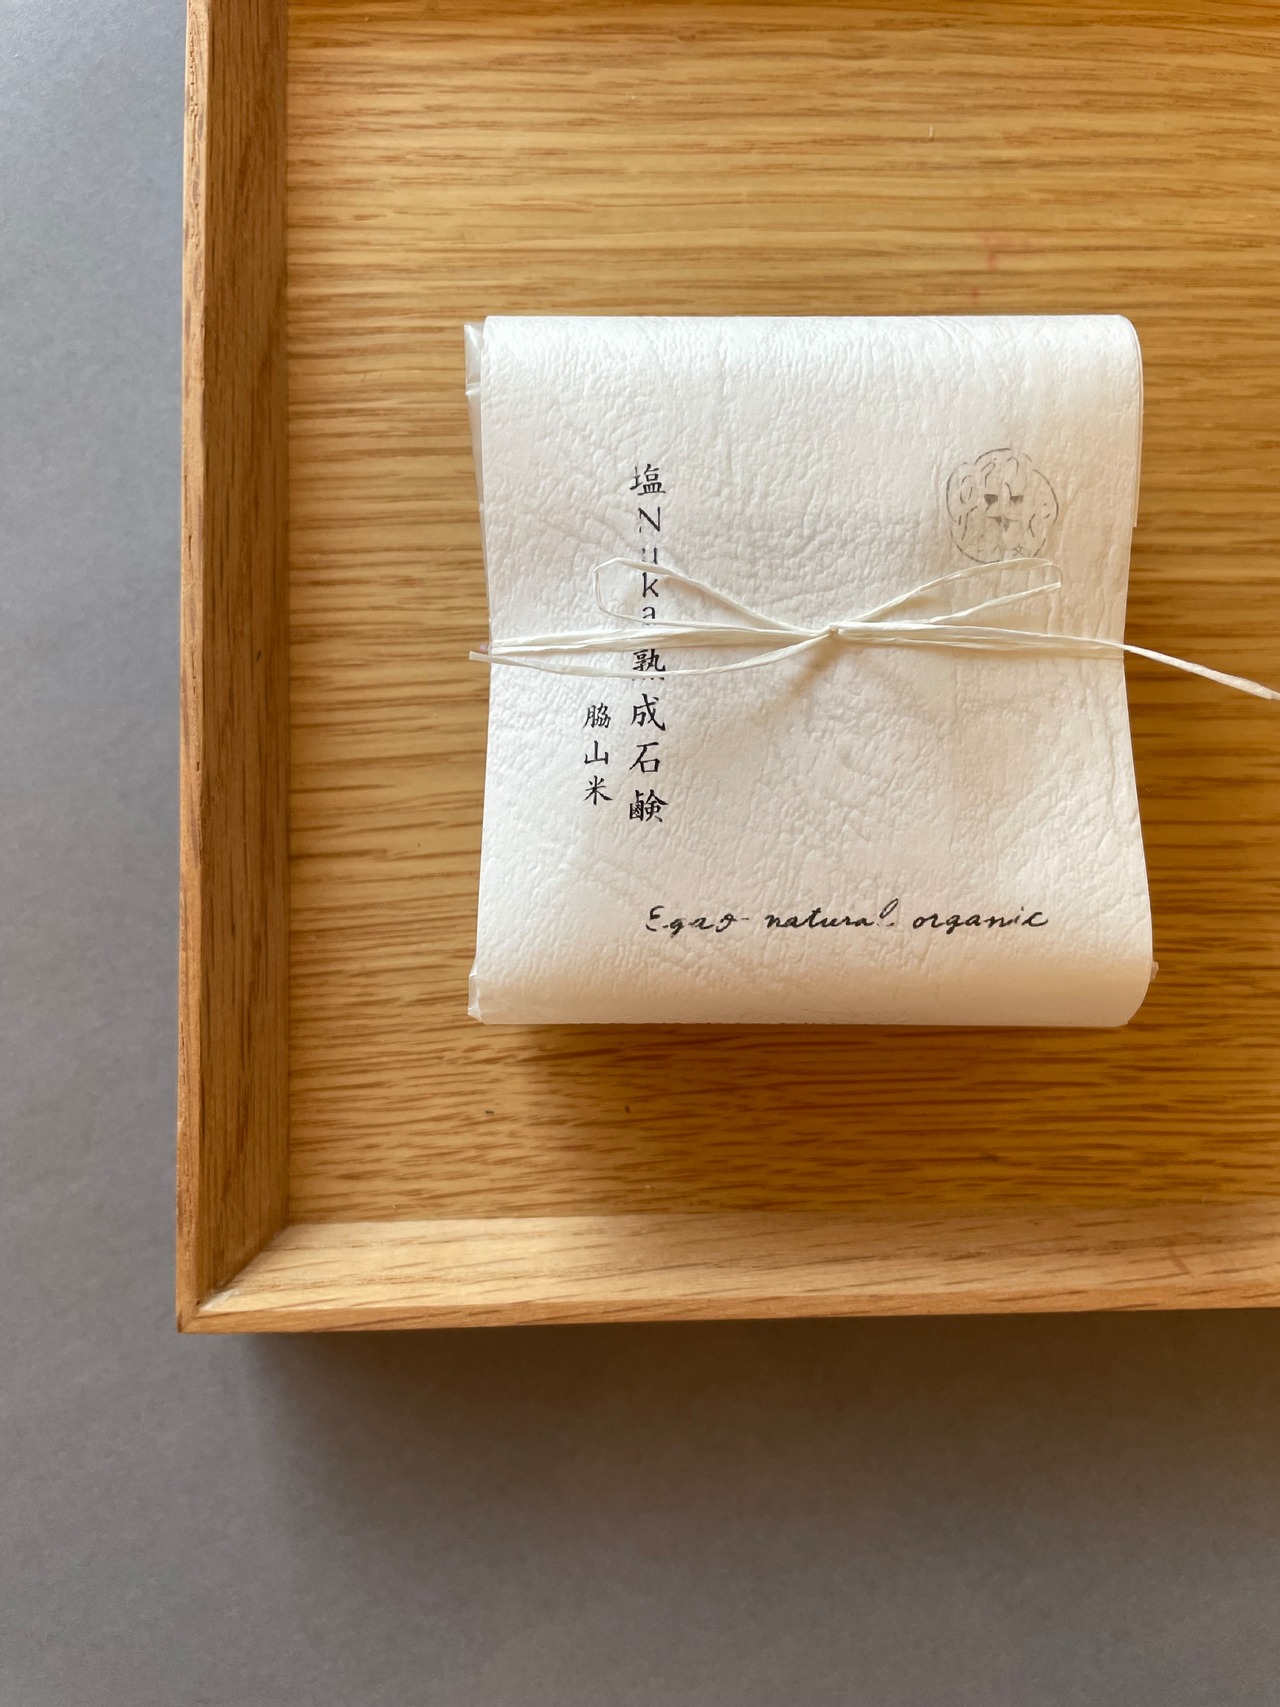 塩Nuka熟成石鹸
脇山米
Egao natural organic